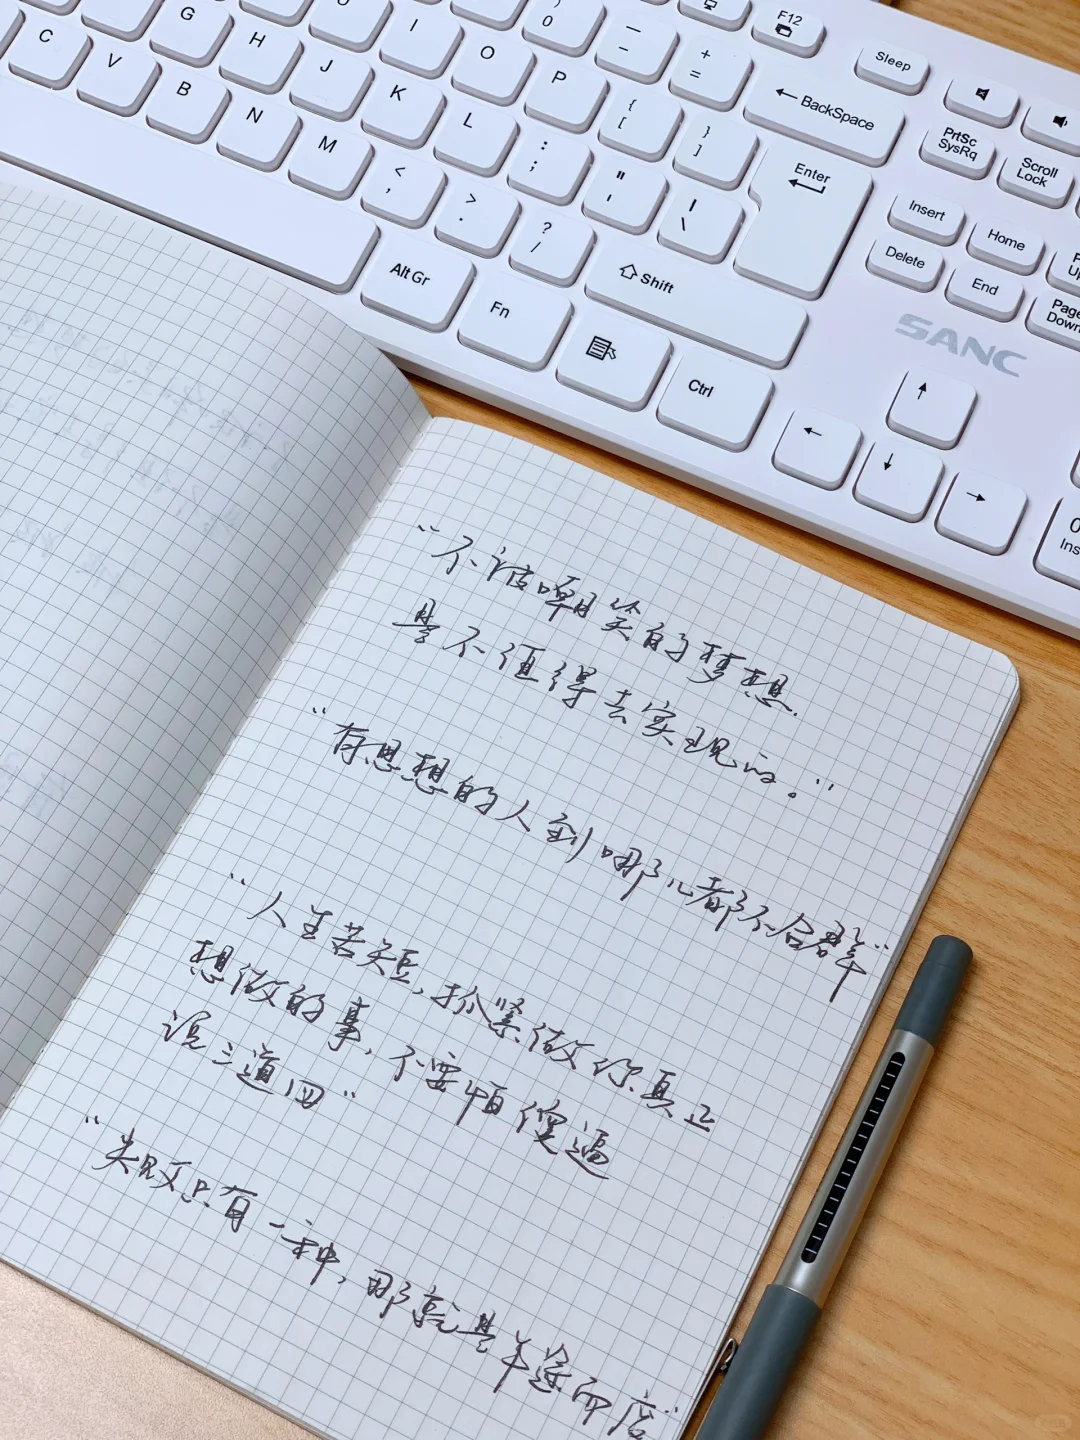 G
U
I
O
)
0
—
-
+
=
F12
Sleep
C
V
H
J
K
L
P
{
[
}
]
← BackSpace
PrtSc
SysRq
Scroll
Lock
B
N
M
<
,
>
.
:
;
"
'
|
\
Enter
Insert
Home
Delete
End
Page
Down
?
/
Shift
Alt Gr
Fn
Ctrl
SANC
↑
←
↓
→
0
Ins
“不被嘲笑的梦想.
是不值得去实现的。”
“有思想的人到哪儿都不合群”
“人生苦短,抓紧做你真正
想做的事,不要怕傻逼
说三道四”
“失败只有一种,那就是半途而废”